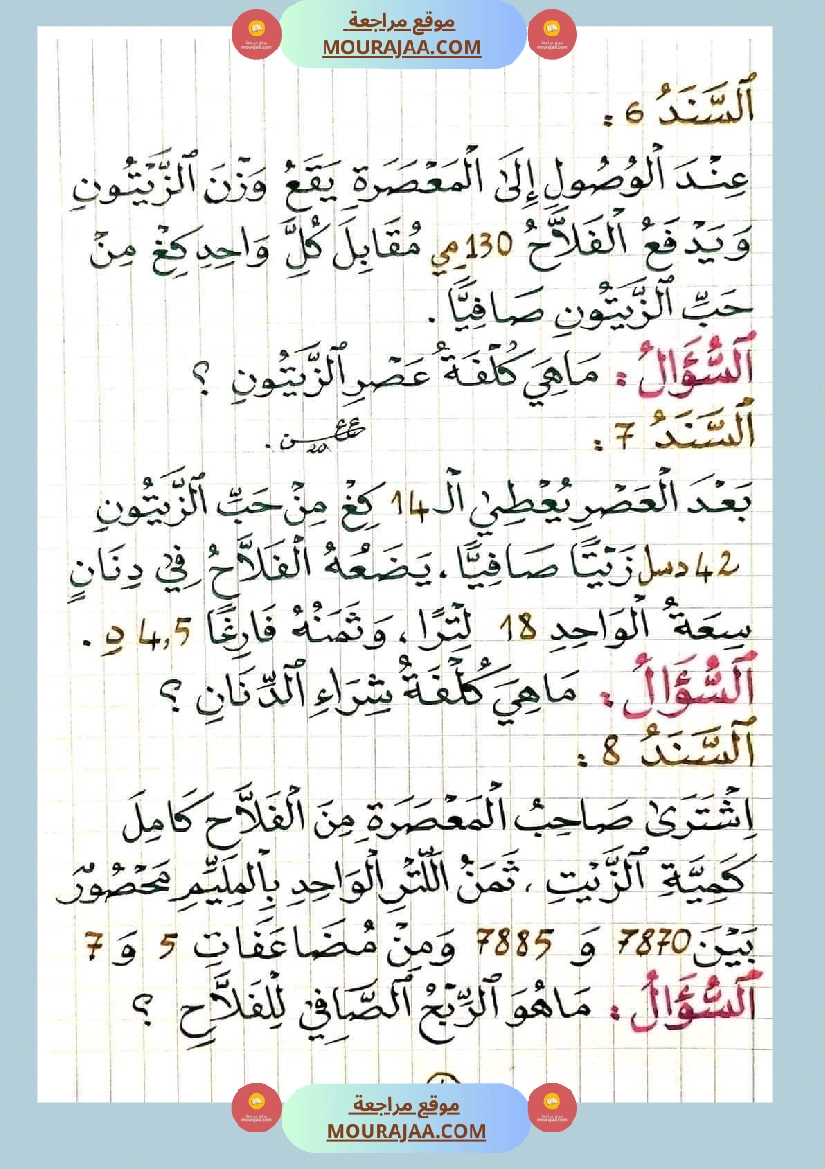 موقع مراجعة
MOURAJAA.COM
اَلسَّنَدُ 6 :
عِنْدَ الْوُصُولِ إِلَى الْمَعْصَرَةِ يَقَعُ وَزْنَ الزَّيْتُونِ
وَيَدْفَعُ الْفَلاَّحُ 130مِي مُقَابِلَ كُلَّ وَاحِدِ كِغْ مِنْ
حَبِّ الزَّيْتُونِ صَافِيًّا .
اَلسُّؤَالُ : مَاهِيَ كُلْفَةُ عَصْرِ الزَّيَتُونِ ؟
اَلسَّنَدُ 7 :
بَعْدَ الْعَصْرِ يُعْطِي الْـ 14 كِغْ مِنْ حَبِّ الزَّيْتُونِ
42 دسل زَيْتًا صَافِيًّا ، يَضَعُهُ الْفَلاَّحُ فِي دِنَانٍ
سِعَةُ الْوَاحِدِ 18 لِتْرًا ، وَثَمَنُهُ فَارِغًا 4,5 دِ .
اَلسُّؤَالُ : مَاهِيَ كُلْفَةُ شِرَاءِ الدِّنَانِ ؟
اَلسَّنَدُ 8 :
اِشْتَرَى صَاحِبُ الْمَعْصَرَةِ مِنَ الْفَلاَّحِ كَامِلَ
كَمِيَّةِ الزَّيْتِ ، ثَمَنُ اللِّتْرِ الْوَاحِدِ بِالْمِلِيِّمِ مَحْصُورٌ
بَيْنَ 7870 وَ 7885 وَمِنْ مُضَاعَفَاتِ 5 وَ 7
اَلسُّؤَالُ : مَاهُوَ الرِّبْحُ الصَّافِي لِلْفَلاَّحِ ؟
موقع مراجعة
MOURAJAA.COM